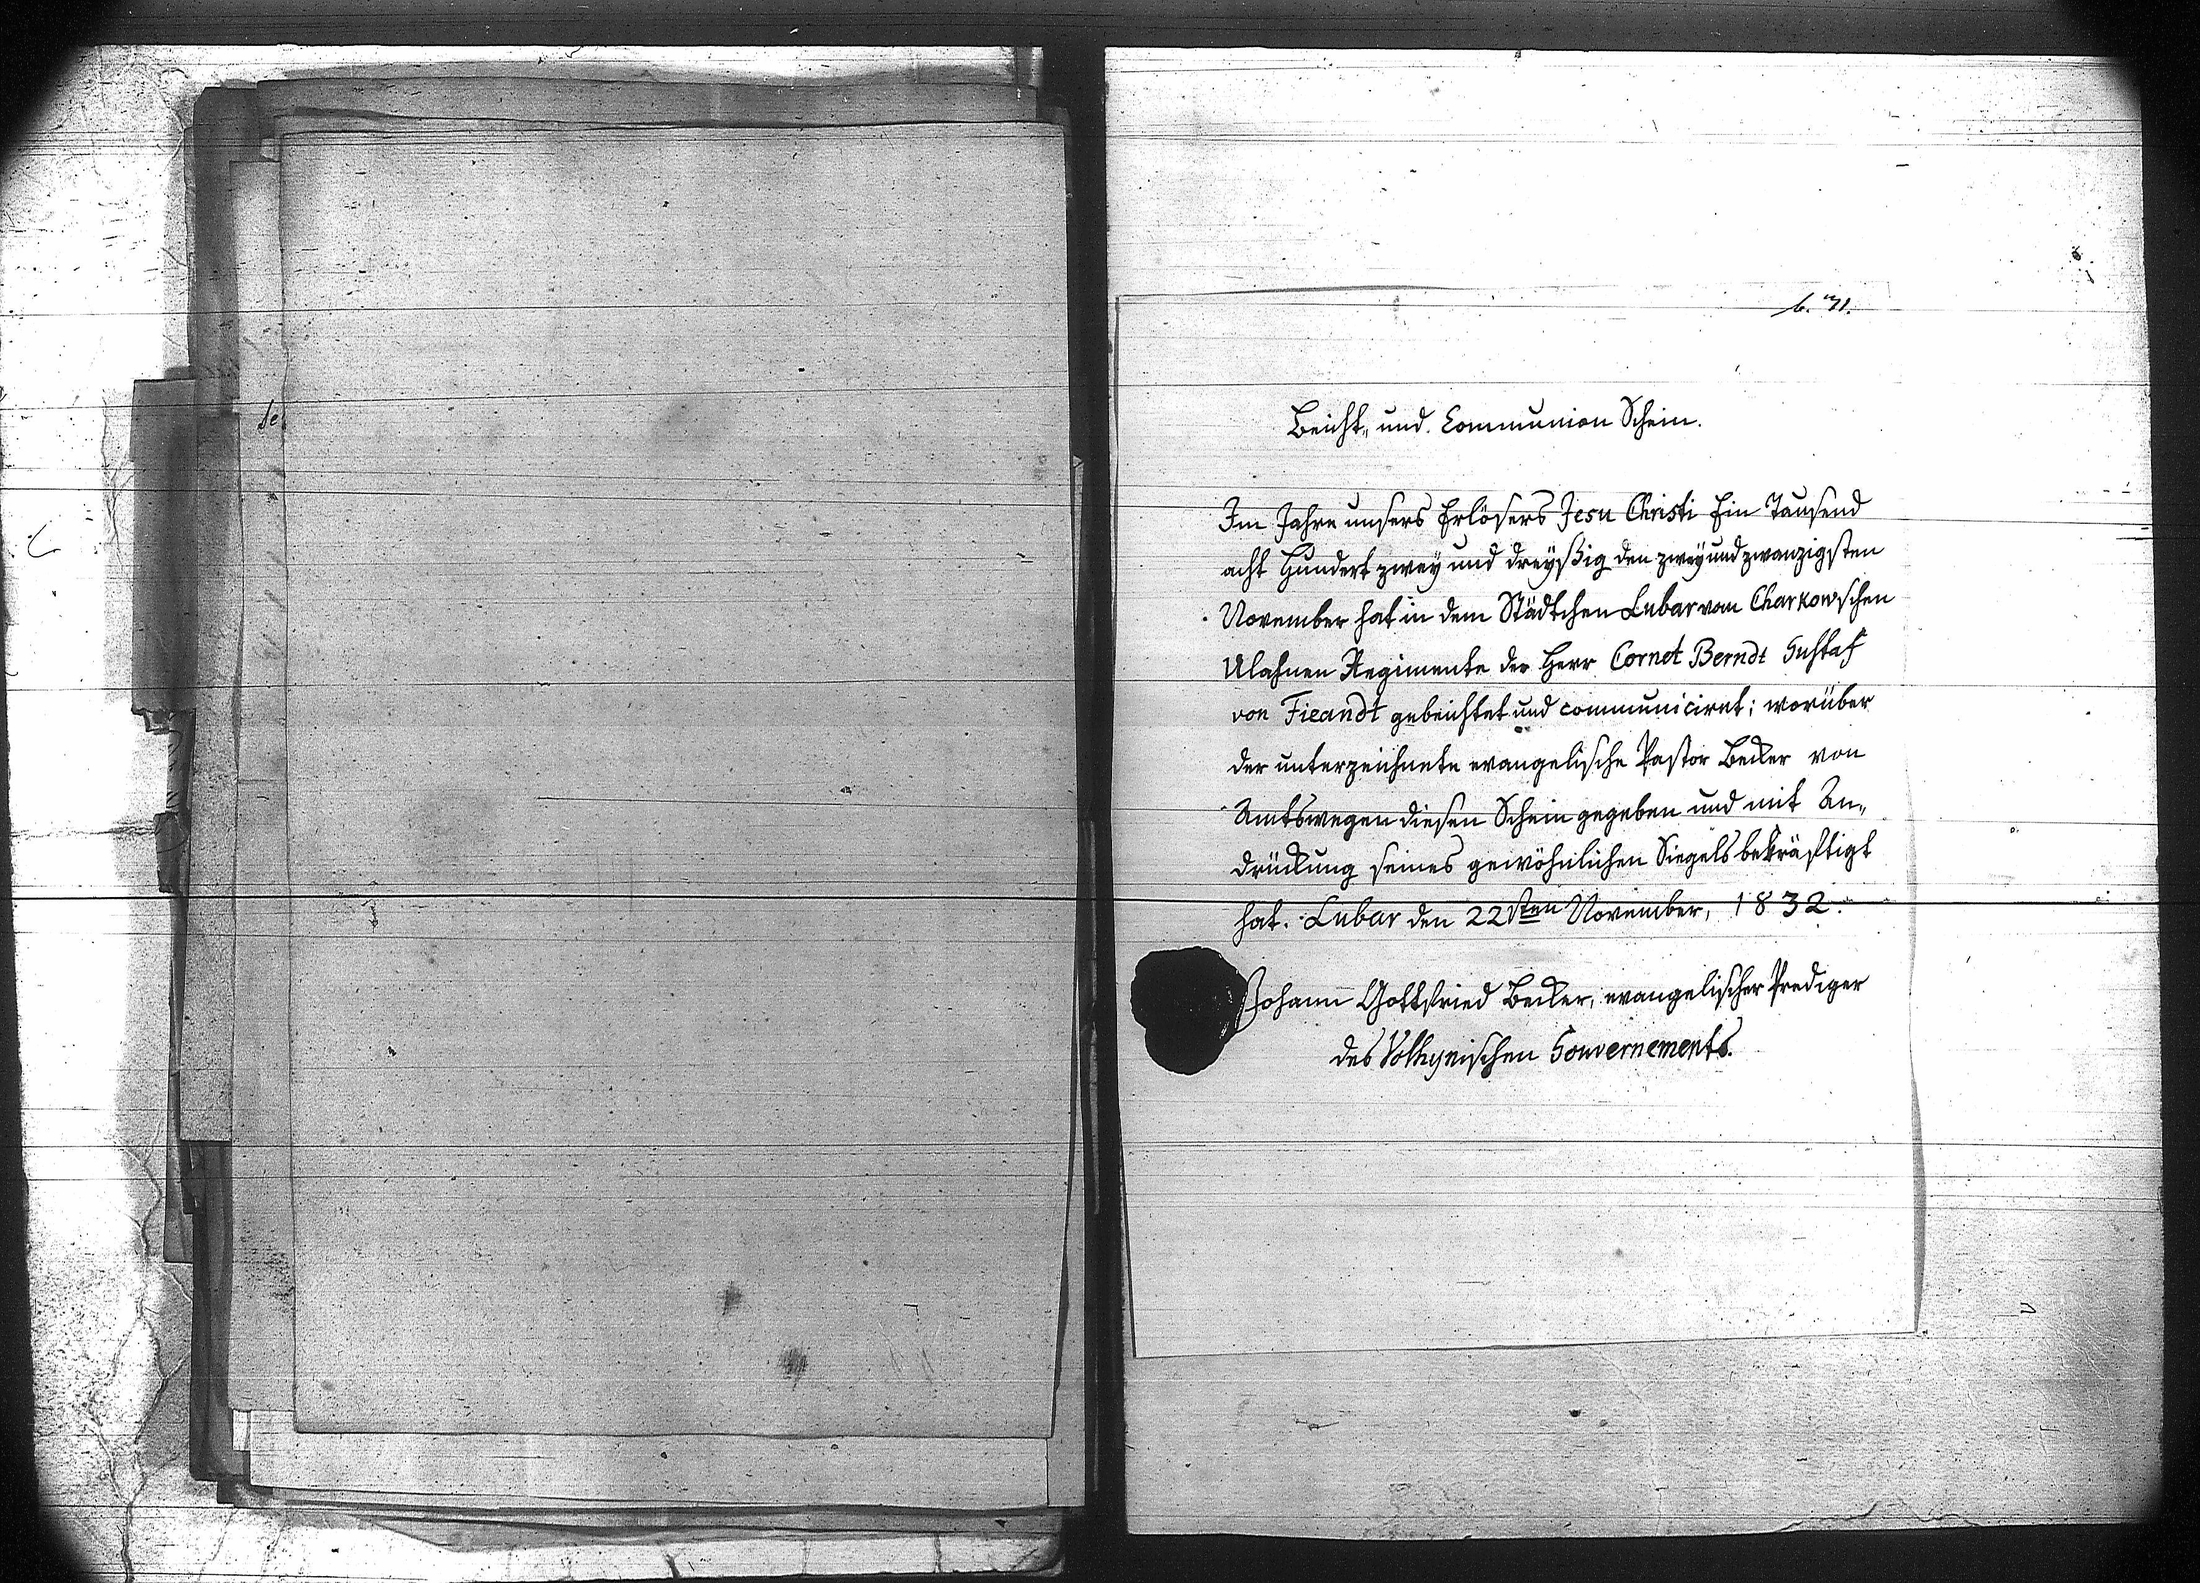 b. 71.
Beicht- und Communion Schein.
Im Jahre unsers Erlösers Jesu Christi Ein Tausend
acht Hundert zwey und dreyßig den zwey und zwanzigsten
November hat in dem Städtchen Lubar vom Charkowschen
Ulahnen Regimente der Herr Cornet Berndt Gustaf
von Fieandt gebeichtet und communiciret; worüber
der unterzeichnete evangelische Pastor Becker von
Amtswegen diesen Schein gegeben und mit An-
drückung seines gewöhnlichen Siegels bekräftigt
hat. Lubar den 22sten November, 1832.
Johann Gottfried Becker, evangelischer Prediger
des Volhynischen Gouvernements.